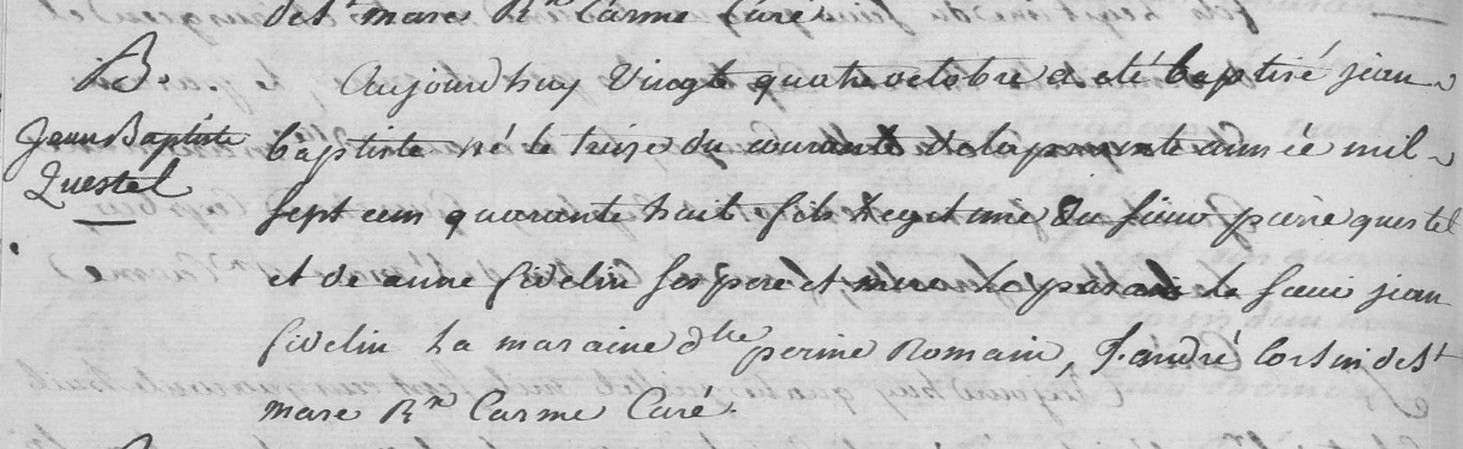 de St. mare Rx Carme Curé.
B.
Jean Baptiste
Questel
Aujourd huy Vingt quatre octobre a eté baptisé jean
baptiste né le treize du courant de la presente année mil
sept cens quarante huit fils legitime du sieur pierre questel
et de anne fidelin ses pere et mere le parain le sieur jean
fidelin La maraine dlle perine Romain, f. andré corsin de St
mare Rx Carme Curé.